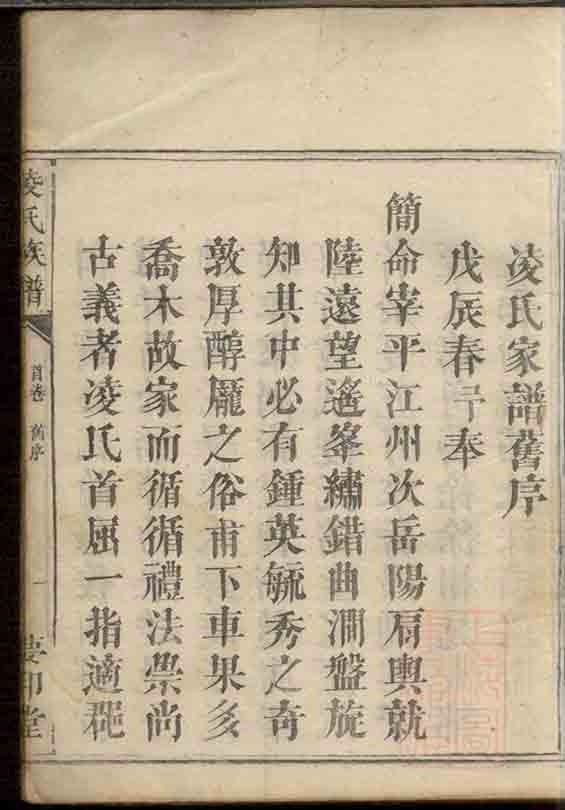 凌氏家譜舊序
戊辰春予奉
簡命宰平江州次岳陽肩輿就
陸遠望遙峯繡錯曲澗盤旋
知其中必有鍾英毓秀之奇
敦厚醇龎之俗甫下車果多
喬木故家而循循禮法崇尚
古義者凌氏首屈一指適郡
凌氏族譜
首卷 舊序
一